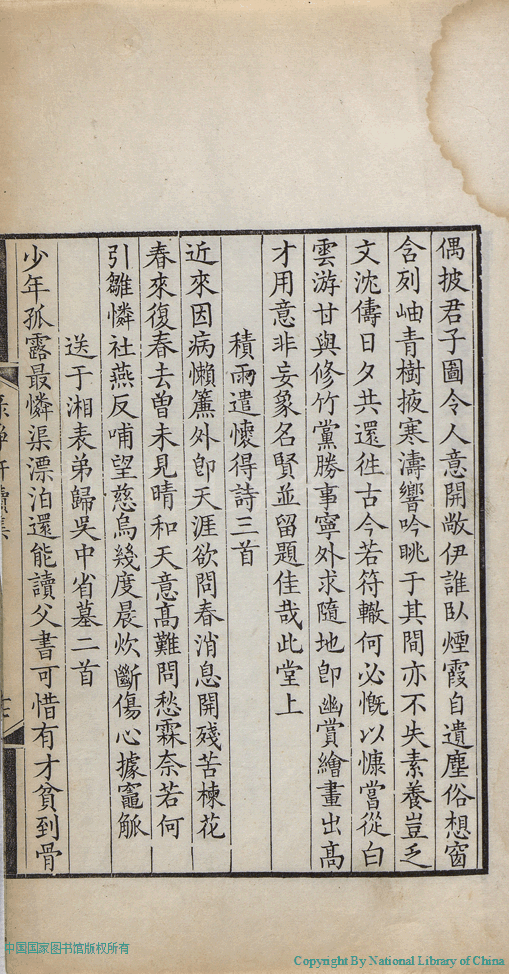 偶披君子圖令人意開敞伊誰臥煙霞自遺塵俗想窗
含列岫青樹掖寒濤響吟眺于其間亦不失素養豈乏
文沈儔日夕共還徃古今若符轍何必慨以慷嘗從白
雲游甘與修竹黨勝事寧外求隨地卽幽賞繪畫出高
才用意非妄象名賢並留題佳哉此堂上
積雨遣懷得詩三首
近來因病懶簾外卽天涯欲問春消息開殘苦楝花
春來復春去曾未見晴和天意高難問愁霖奈若何
引雛憐社燕反哺望慈烏幾度晨炊斷傷心據竈觚
送于湘表弟歸吳中省墓二首
少年孤露最憐渠漂泊還能讀父書可惜有才貧到骨
中国国家图书馆版权所有
Copyright By National Library of China